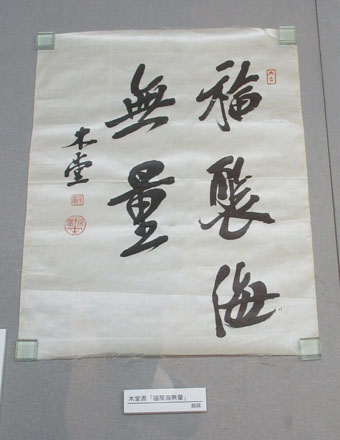 福聚海
無量
木堂
木堂書「福聚海無量」
館蔵